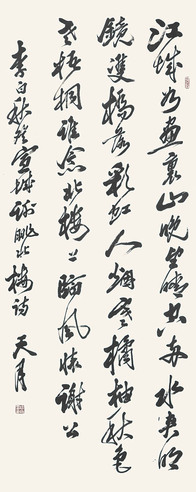 江城如畫裏山晚望晴空兩水夾明
鏡雙橋落彩虹人烟寒橘柚秋色
老梧桐誰念北樓上臨風懷謝公
李白秋登宣城謝朓北樓詩 天月